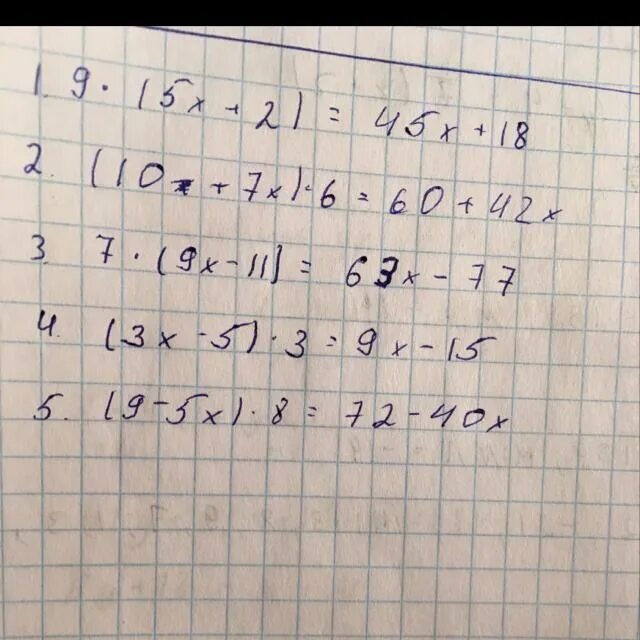 1. 9 · (5x + 2) = 45x + 18
2. (10 + 7x) · 6 = 60 + 42x
3. 7 · (9x - 11) = 63x - 77
4. (3x - 5) · 3 = 9x - 15
5. (9 - 5x) · 8 = 72 - 40x